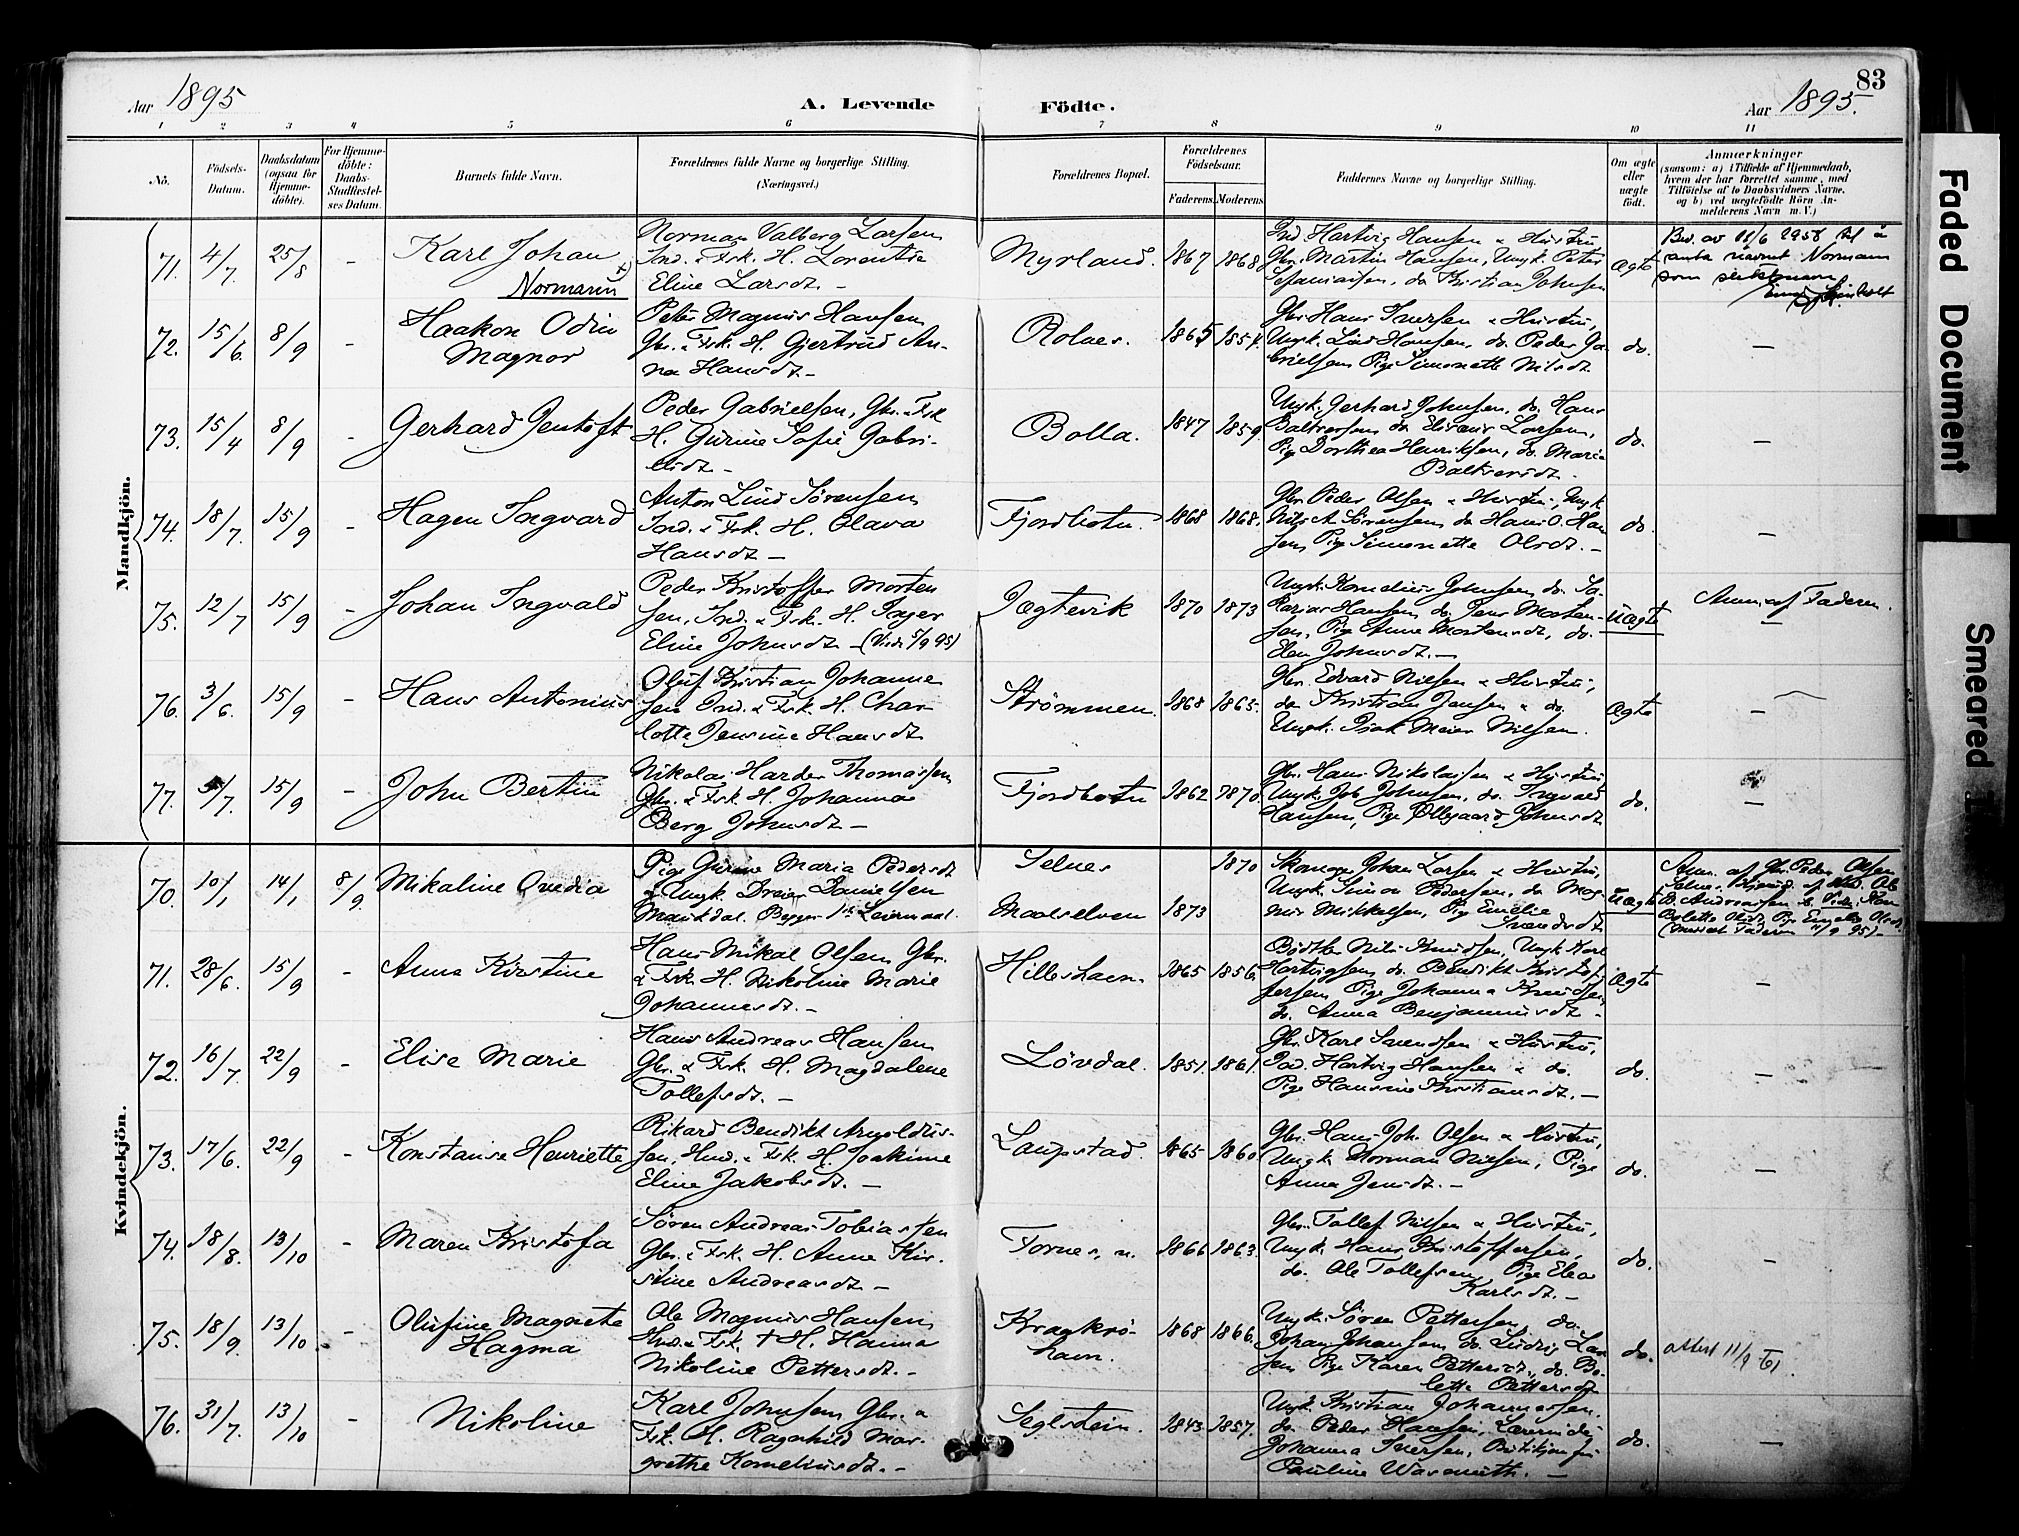 83
Aar 1895
A. Levende Födte.
Aar 1895.
1 2 3 4 5 6 7 8 9 10 11
No.
Födsels-Datum.
Daabsdatum (ogsaa for Hjemme-döbte).
For Hjemme-döbte: Daabs-Stadfæstel-ses Datum.
Barnets fulde Navn.
Forældrenes fulde Navne og borgerlige Stilling.
(Næringsvei.)
Forældrenes Bopæl.
Forældrenes Födselsaar.
Faderens. Moderens.
Faddernes Navne og borgerlige Stilling.
Om ægte eller uægte födt.
Anmærkninger
(saasom: a) i Tilfælde af Hjemmedaab,
hvem der har forrettet samme, med
Tilföielse af to Daabsvidners Navne,
og b) ved uægtefödte Börn An-
melderens Navn m. V.)
Mandkjön.
71. 4/7 25/8 - Karl Johan
Normann
Norman Valberg Larsen
Ind. & Fsk. H. Lorentse
Eline Larsdt. -
Myrland. 1867 1868
Ind Hartvig Hansen & Hustru
Gbr. Martin Hansen, Ungk. Peter
do Kristian Johnsen
Ægte
Bev. av 11/6 1958 til å
anta navnet Normann
som slektsnavn
72. 15/6. 8/9 - Haakon Odin
Magnor
Peter Magnus Hansen
Gbr. & Fsk. H. Gjertrud An-
na Hansdt. -
Rolaes. 1865 1854.
Gbr. Hans Iversen & Hustru,
Ungk. Lind Hansen, do. Peder Ga-
brielsen Pige Simonette Nilsdt
do. -
73. 15/4 8/9 - Gerhard Jentoft
Peder Gabrielsen, Gbr. & Fsk
H. Gurine Sofie Gabri-
elsdt -
Bolla. 1847 1859.
Ungk. Gerhard Johnsen, do. Hans
Baltsersen do Larsen,
Pig Dorthea Henriksen, do. Maria
Baltsersdt.
do. -
74. 18/7. 15/9 - Hagen Ingvard
Anton Lind Sørensen
Ind. & Fsk. H. Olava
Hansdt -
Fjordbotn. 1868 1868.
Gbr. Peder Olsen & Hustru, Ungk
Nils A Sørensen, do Hans O. Han
sen, Pige Simonette Olsdt. -
do. -
75. 12/7 15/9 - Johan Ingvald
Peder Kristoffer Morten
sen, Ind. & Fsk. H. Inger
Eline Johnsdt - (Viede 5/9 95)
Jægtevik 1870 1873
Ungk. Kornelius Johnsen do. Za-
karias Hansen do. Jens Morten-
sen, Pige Anne Mortensdt, do.
Elen Johnsdt. -
Uægte
Anm. af Faderen.
-
76. 3/6. 15/9 - Hans Antonius
Oluf Kristian Johanne
sen Ind. & Fsk. H. Char
lotte Jensine Hansdt
Strømmen. 1868 1865.
Gbr. Edvard Nilsen & Hustru,
do Kristian Jensen & do.
Ungk. Isak Meier Nilsen.
Ægte -
77. 5/7. 15/9 - John Bertin
Nikolai Harder Thomassen
Gbr. & Fsk. H. Johanna
Berg Johnsdt -
Fjordbotn 1862 1870.
Gbr. Hans Nikolaisen & Hustru
Ungk. Job Johnsen, do. Ingvald
Hansen, Pige Ollegaard Johnsdt
do. -
Kvindekjön.
70. 10/1 14/1 8/9. Mikaline Ovedia
Pige Gurine Maria Pedersdt
& Ungk Dreier Danielsen
Maukdal. Begges 1ste Leiermaal.
Selnes
Maalselven 1873 1870
Skomager Johan Larsen & Hustru,
Ungk. Simon Pedersen, do Mag-
nus Mikkelsen, Pig Emelie
Svendsdt
Uægte
Anm. af Gbr. Peder Olsen
Selnes.
B. Andreassen
Bolette Olsdt, Pige Olsdt
71. 28/6. 15/9 - Anna Kirstine
Hans Mikal Olsen Gbr.
& Fsk. H. Nikoline Marie
Johannesdt. -
Hilleshavn. 1865 1856.
Bødker Nils Knudsen, Ungk Karl
Hartvigsen do. Benedikt Kristof-
fersen, Pige Johanna Knudsen,
do. Anna Benjaminsdt -
Ægte -
72. 16/7. 22/9 - Elise Marie
Hans Andreas Hansen
Gbr. & Fsk. H. Magdalene
Tollefsdt. -
Løvdal. 1851. 1861.
Gbr. Karl Svendsen & Hustru,
Ind. Hartvig Hansen & do.
Pige Hansine Kristiansdt. -
do. -
73. 17/6. 22/9 - Konstanse Henriette
Rikard Bendikt Arnoldus-
sen, Ind. & Fsk. H. Joakime
Eline Jakobsdt. -
Laupstad. 1865 1860
Gbr. Hans Joh. Olsen & Hustru,
Ungk Norman Nilsen, Pige
Anna Jensdt. -
do. -
74. 18/8. 13/10 - Maren Kristofa
Søren Andreas Tobiassen
Gbr. & Fsk. H. Anne Kir-
stine Andreasdt -
Fornes, n. 1866 1863.
Gbr. Tollef Nilsen & Hustru,
Ungk. Hans Kristoffersen,
do. Ole Tollefsen Pige Elea
Karlsdt. -
do. -
75. 18/9. 13/10 - Olufine Magnete
Hagma
Ole Magnus Hansen
Ind. & Fsk. & H. Hanna
Nikoline Pettersdt. -
Kraakrø-
havn. 1868 1866.
Ungk. Søren Pettersen, do.
Johan Johansen do. Ludvig Lar
sen Pige Karen Pettersdt, do. Bo-
lette Pettersdt
do.
attest 11/9 61
76. 31/7. 13/10 - Nikoline
Karl Johnsen Gbr. &
Fsk. H. Ragnhild Mar-
grethe Korneliusdt. -
Seglstein. 1843 1857.
Ungk. Kristian Johannesen.
do. Peder Hansen, Lærerinde
Johanna Iversen,
Pauline Wasmuth. -
do. -
Faded Document
Smeared